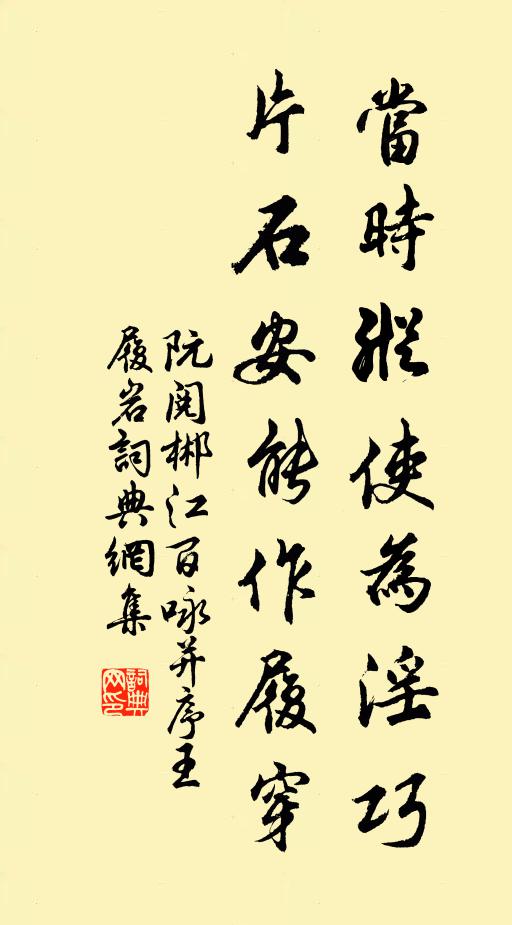 當時縱使為淫巧
片石安能作履穿
阮閱郴江百咏并序王
履岩詞典網集
詞典网印